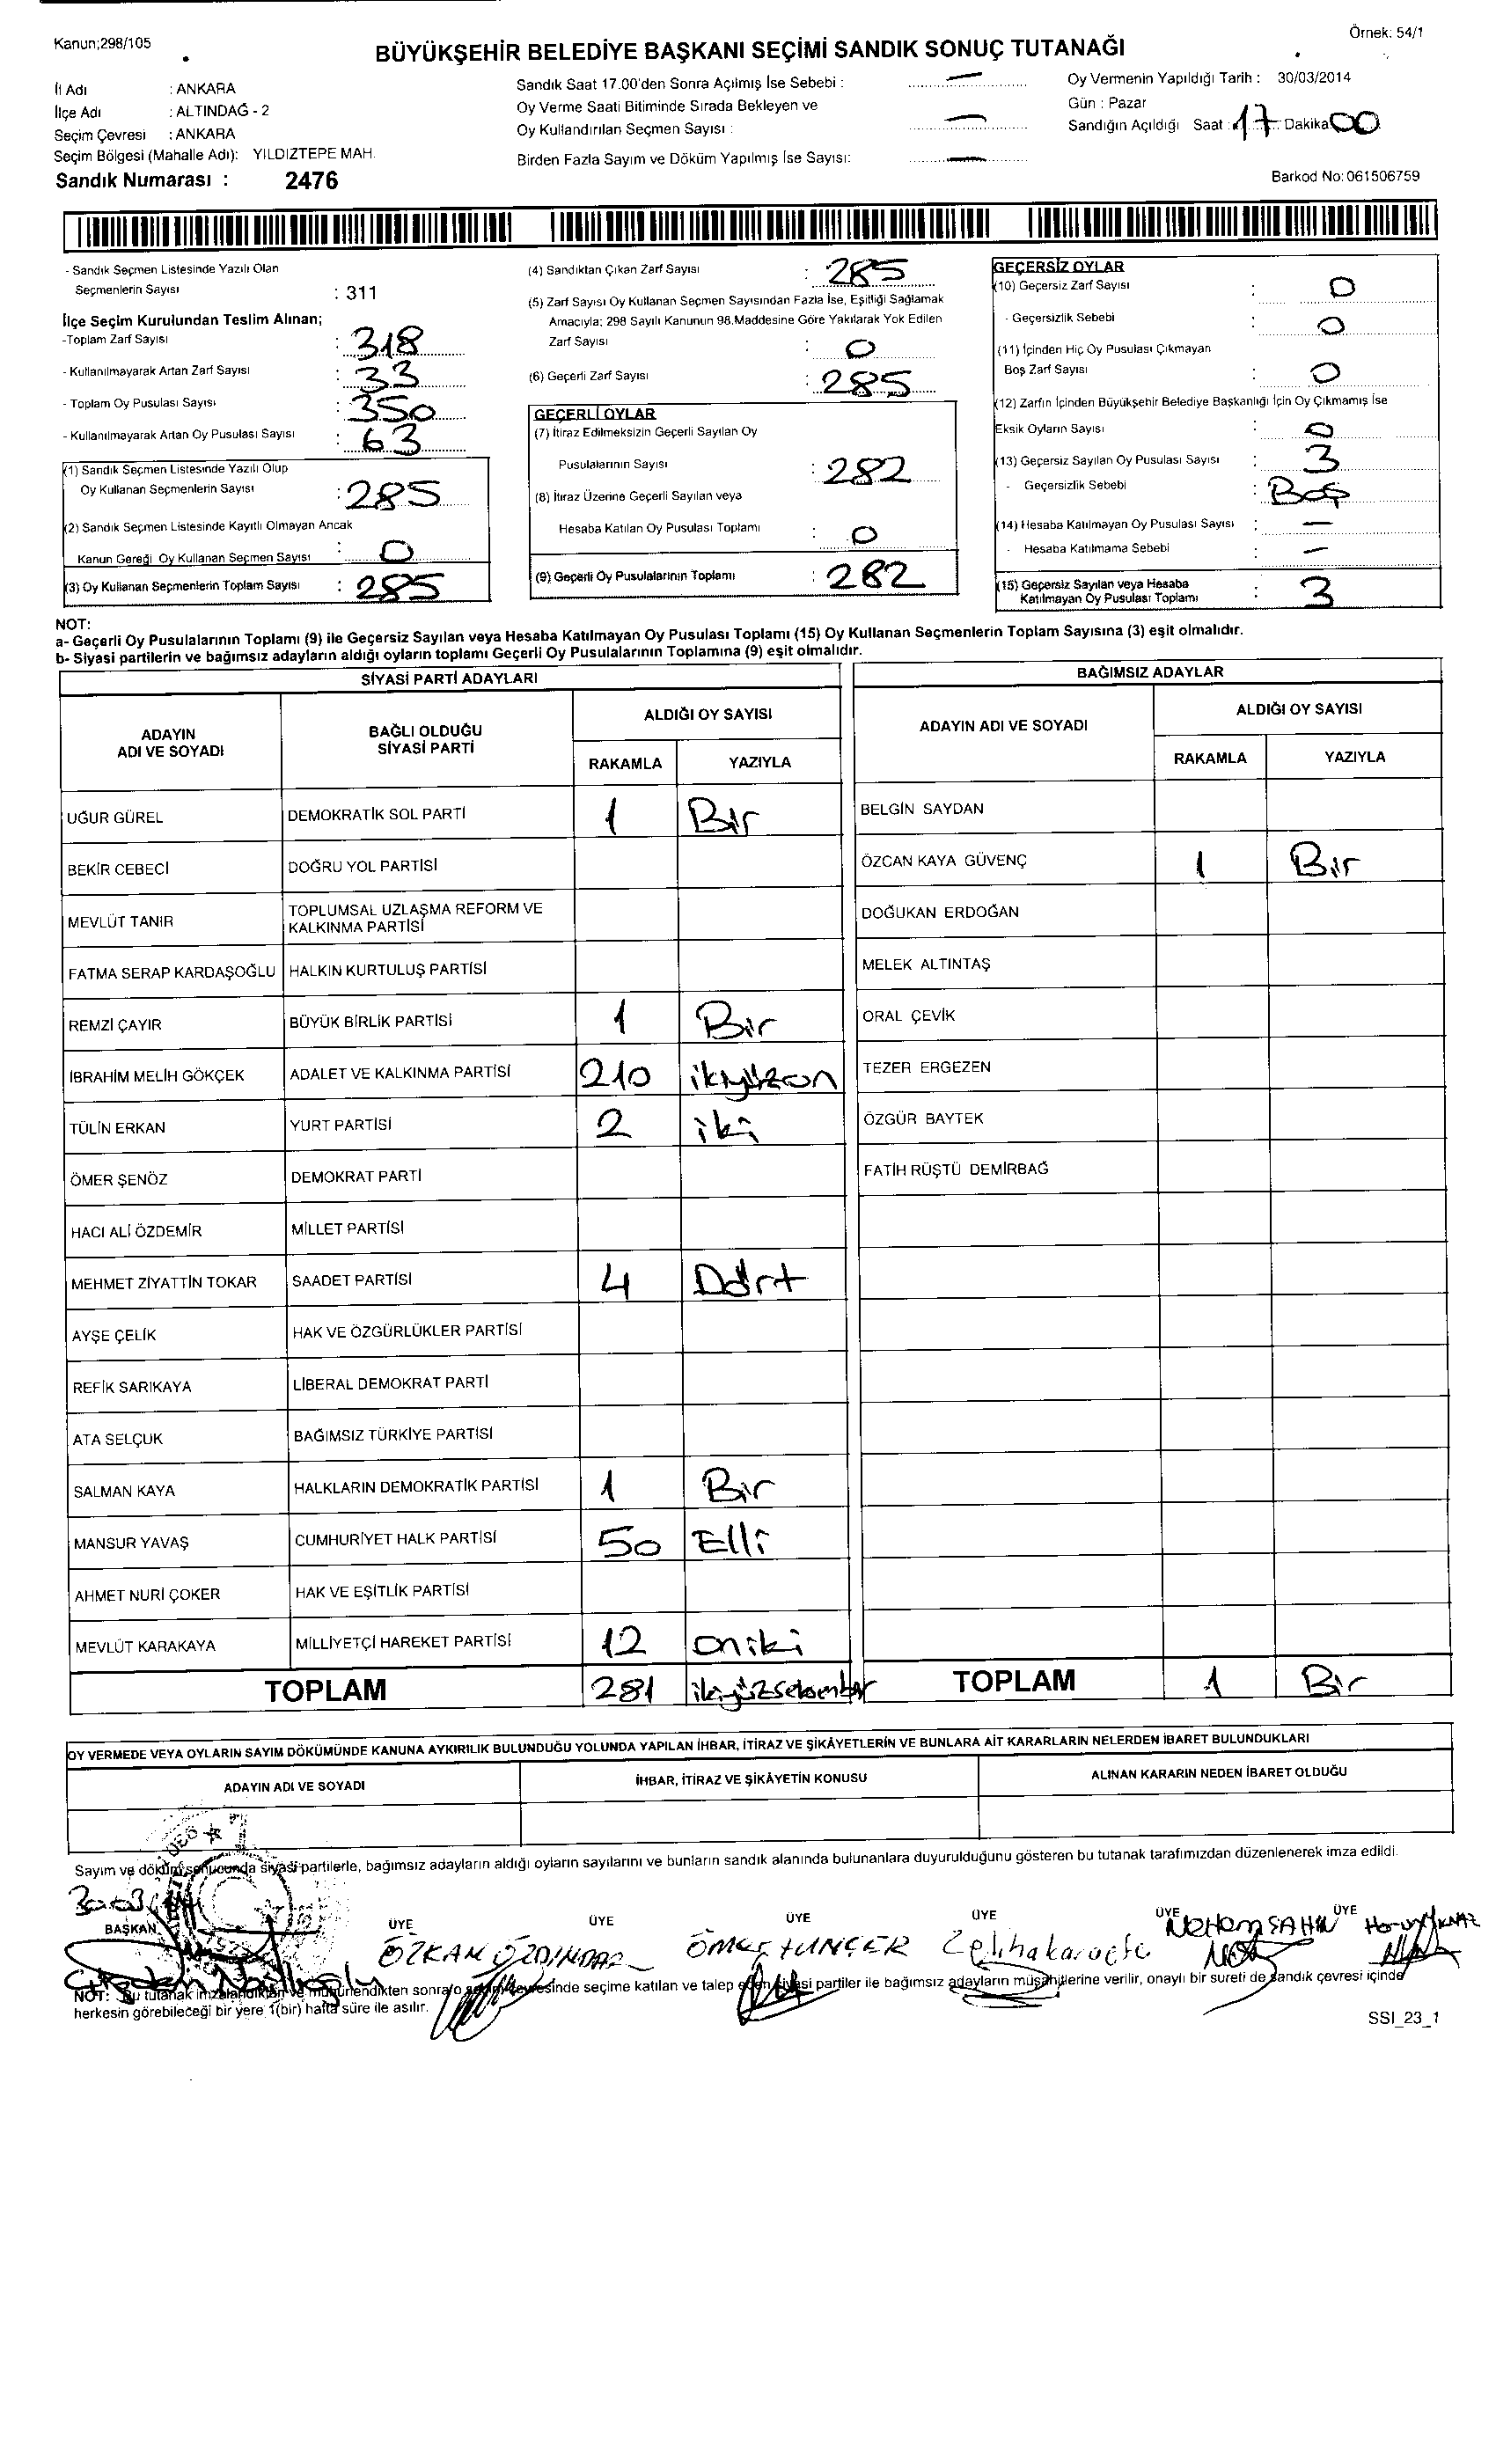 Kanun;298/105
Örnek: 54/1
BÜYÜKŞEHİR BELEDİYE BAŞKANI SEÇİMİ SANDIK SONUÇ TUTANAĞI
İl Adı : ANKARA
İlçe Adı : ALTINDAĞ - 2
Seçim Çevresi : ANKARA
Seçim Bölgesi (Mahalle Adı): YILDIZTEPE MAH.
Sandık Numarası : 2476
Sandık Saat 17.00'den Sonra Açılmış İse Sebebi : —
Oy Verme Saati Bitiminde Sırada Bekleyen ve
Oy Kullandırılan Seçmen Sayısı : —
Birden Fazla Sayım ve Döküm Yapılmış İse Sayısı: —
Oy Vermenin Yapıldığı Tarih : 30/03/2014
Gün : Pazar
Sandığın Açıldığı Saat : 17 Dakika 00
Barkod No:061506759
- Sandık Seçmen Listesinde Yazılı Olan
Seçmenlerin Sayısı : 311
İlçe Seçim Kurulundan Teslim Alınan;
-Toplam Zarf Sayısı : 318
- Kullanılmayarak Artan Zarf Sayısı : 33
- Toplam Oy Pusulası Sayısı : 350
- Kullanılmayarak Artan Oy Pusulası Sayısı : 63
(1) Sandık Seçmen Listesinde Yazılı Olup
Oy Kullanan Seçmenlerin Sayısı : 285
(2) Sandık Seçmen Listesinde Kayıtlı Olmayan Ancak
Kanun Gereği Oy Kullanan Seçmen Sayısı : 0
(3) Oy Kullanan Seçmenlerin Toplam Sayısı : 285
(4) Sandıktan Çıkan Zarf Sayısı : 285
(5) Zarf Sayısı Oy Kullanan Seçmen Sayısından Fazla İse, Eşitliği Sağlamak
Amacıyla; 298 Sayılı Kanunun 98.Maddesine Göre Yakılarak Yok Edilen
Zarf Sayısı : 0
(6) Geçerli Zarf Sayısı : 285
GEÇERLİ OYLAR
(7) İtiraz Edilmeksizin Geçerli Sayılan Oy
Pusulalarının Sayısı : 282
(8) İtiraz Üzerine Geçerli Sayılan veya
Hesaba Katılan Oy Pusulası Toplamı : 0
(9) Geçerli Oy Pusulalarının Toplamı : 282
GEÇERSİZ OYLAR
(10) Geçersiz Zarf Sayısı : 0
- Geçersizlik Sebebi : 0
(11) İçinden Hiç Oy Pusulası Çıkmayan
Boş Zarf Sayısı : 0
(12) Zarfın İçinden Büyükşehir Belediye Başkanlığı İçin Oy Çıkmamış İse
Eksik Oyların Sayısı : 0
(13) Geçersiz Sayılan Oy Pusulası Sayısı : 3
- Geçersizlik Sebebi : Boş
(14) Hesaba Katılmayan Oy Pusulası Sayısı : —
- Hesaba Katılmama Sebebi : —
(15) Geçersiz Sayılan veya Hesaba
Katılmayan Oy Pusulası Toplamı : 3
NOT:
a- Geçerli Oy Pusulalarının Toplamı (9) ile Geçersiz Sayılan veya Hesaba Katılmayan Oy Pusulası Toplamı (15) Oy Kullanan Seçmenlerin Toplam Sayısına (3) eşit olmalıdır.
b- Siyasi partilerin ve bağımsız adayların aldığı oyların toplamı Geçerli Oy Pusulalarının Toplamına (9) eşit olmalıdır.
SİYASİ PARTİ ADAYLARI
ADAYIN ADI VE SOYADI BAĞLI OLDUĞU SİYASİ PARTİ ALDIĞI OY SAYISI
RAKAMLA YAZIYLA
UĞUR GÜREL DEMOKRATİK SOL PARTİ 1 Bir
BEKİR CEBECİ DOĞRU YOL PARTİSİ
MEVLÜT TANIR TOPLUMSAL UZLAŞMA REFORM VE KALKINMA PARTİSİ
FATMA SERAP KARDAŞOĞLU HALKIN KURTULUŞ PARTİSİ
REMZİ ÇAYIR BÜYÜK BİRLİK PARTİSİ 1 Bir
İBRAHİM MELİH GÖKÇEK ADALET VE KALKINMA PARTİSİ 210 ikiyüzon
TÜLİN ERKAN YURT PARTİSİ 2 iki
ÖMER ŞENÖZ DEMOKRAT PARTİ
HACI ALİ ÖZDEMİR MİLLET PARTİSİ
MEHMET ZİYATTİN TOKAR SAADET PARTİSİ 4 Dört
AYŞE ÇELİK HAK VE ÖZGÜRLÜKLER PARTİSİ
REFİK SARIKAYA LİBERAL DEMOKRAT PARTİ
ATA SELÇUK BAĞIMSIZ TÜRKİYE PARTİSİ
SALMAN KAYA HALKLARIN DEMOKRATİK PARTİSİ 1 Bir
MANSUR YAVAŞ CUMHURİYET HALK PARTİSİ 50 Elli
AHMET NURİ ÇOKER HAK VE EŞİTLİK PARTİSİ
MEVLÜT KARAKAYA MİLLİYETÇİ HAREKET PARTİSİ 12 oniki
TOPLAM 281 ikiyüzseksenbir
BAĞIMSIZ ADAYLAR
ADAYIN ADI VE SOYADI ALDIĞI OY SAYISI
RAKAMLA YAZIYLA
BELGİN SAYDAN
ÖZCAN KAYA GÜVENÇ 1 Bir
DOĞUKAN ERDOĞAN
MELEK ALTINTAŞ
ORAL ÇEVİK
TEZER ERGEZEN
ÖZGÜR BAYTEK
FATİH RÜŞTÜ DEMİRBAĞ
TOPLAM 1 Bir
OY VERMEDE VEYA OYLARIN SAYIM DÖKÜMÜNDE KANUNA AYKIRILIK BULUNDUĞU YOLUNDA YAPILAN İHBAR, İTİRAZ VE ŞİKÂYETLERİN VE BUNLARA AİT KARARLARIN NELERDEN İBARET BULUNDUKLARI
ADAYIN ADI VE SOYADI İHBAR, İTİRAZ VE ŞİKÂYETİN KONUSU ALINAN KARARIN NEDEN İBARET OLDUĞU
Sayım ve döküm sonucunda siyasi partilerle, bağımsız adayların aldığı oyların sayılarını ve bunların sandık alanında bulunanlara duyurulduğunu gösteren bu tutanak tarafımızdan düzenlenerek imza edildi.
BAŞKAN ÜYE ÜYE ÜYE ÜYE ÜYE ÜYE
ÖZKAN ÖZDİNDAR ÖMER TUNÇER Zeliha Meltem ŞAHİN
NOT: Bu tutanak imzalandıktan ve mühürlendikten sonra o seçim çevresinde seçime katılan ve talep eden siyasi partiler ile bağımsız adayların müşahitlerine verilir, onaylı bir sureti de sandık çevresi içinde
herkesin görebileceği bir yere 1(bir) hafta süre ile asılır.
SSI_23_1